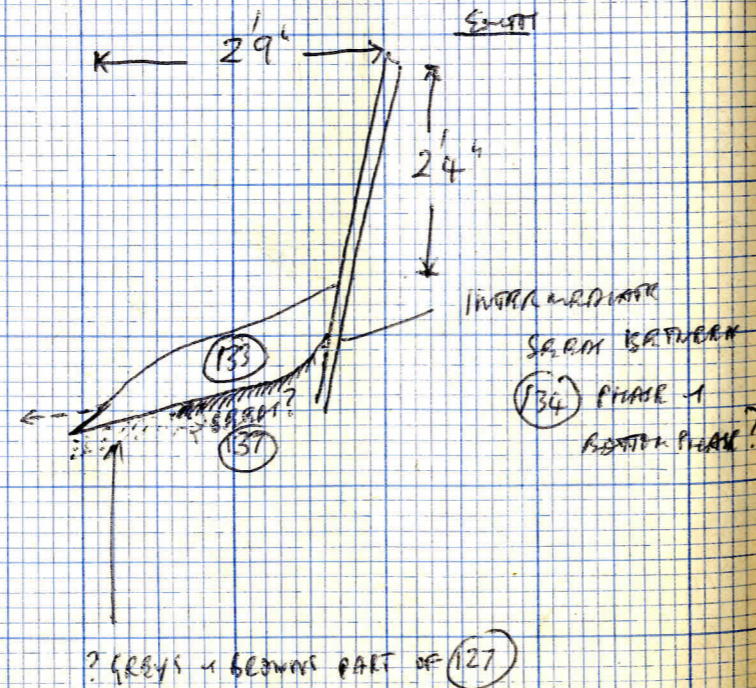 SOUTH
2'9"
2'4"
INTERMEDIATE
SEEDS BETWEEN
(134) PHASE &
BOTTOM PHASE?
(133)
(137)
? GREYS & BROWNS PART OF (127)